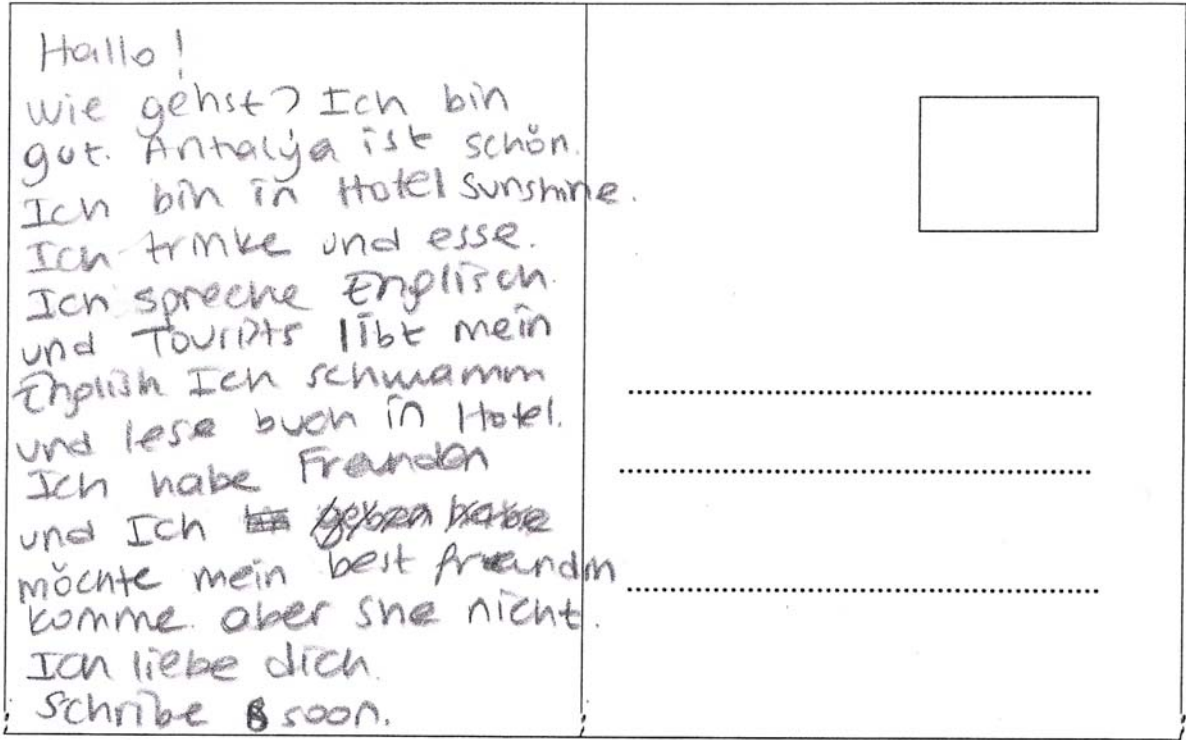 Hallo!
wie gehst? Ich bin
gut. Antalya ist schön.
Ich bin in Hotel Sunshine.
Ich trinke und esse.
Ich spreche Englisch
und Tourists libt mein
English Ich schwamm
und lese buch in Hotel.
Ich habe Freunden
und Ich
möchte mein best freundin
komme. aber she nicht.
Ich liebe dich.
Schribe soon.